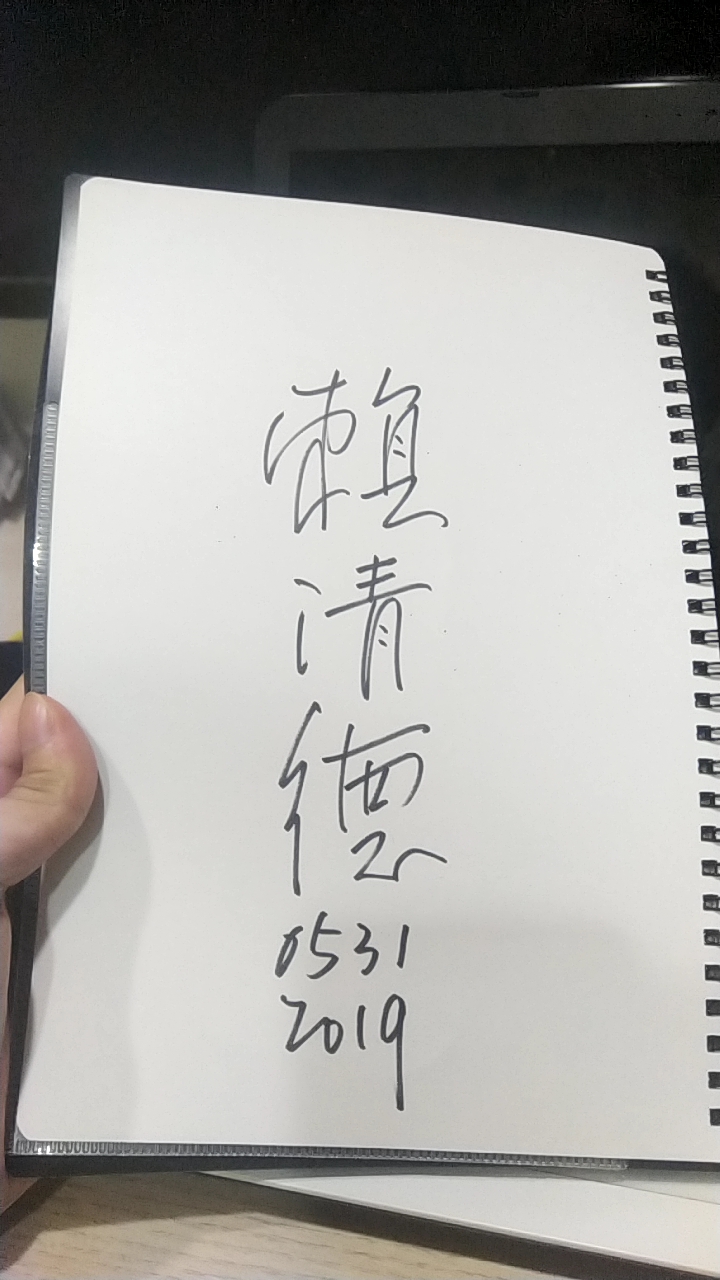 賴清德
0531
2019